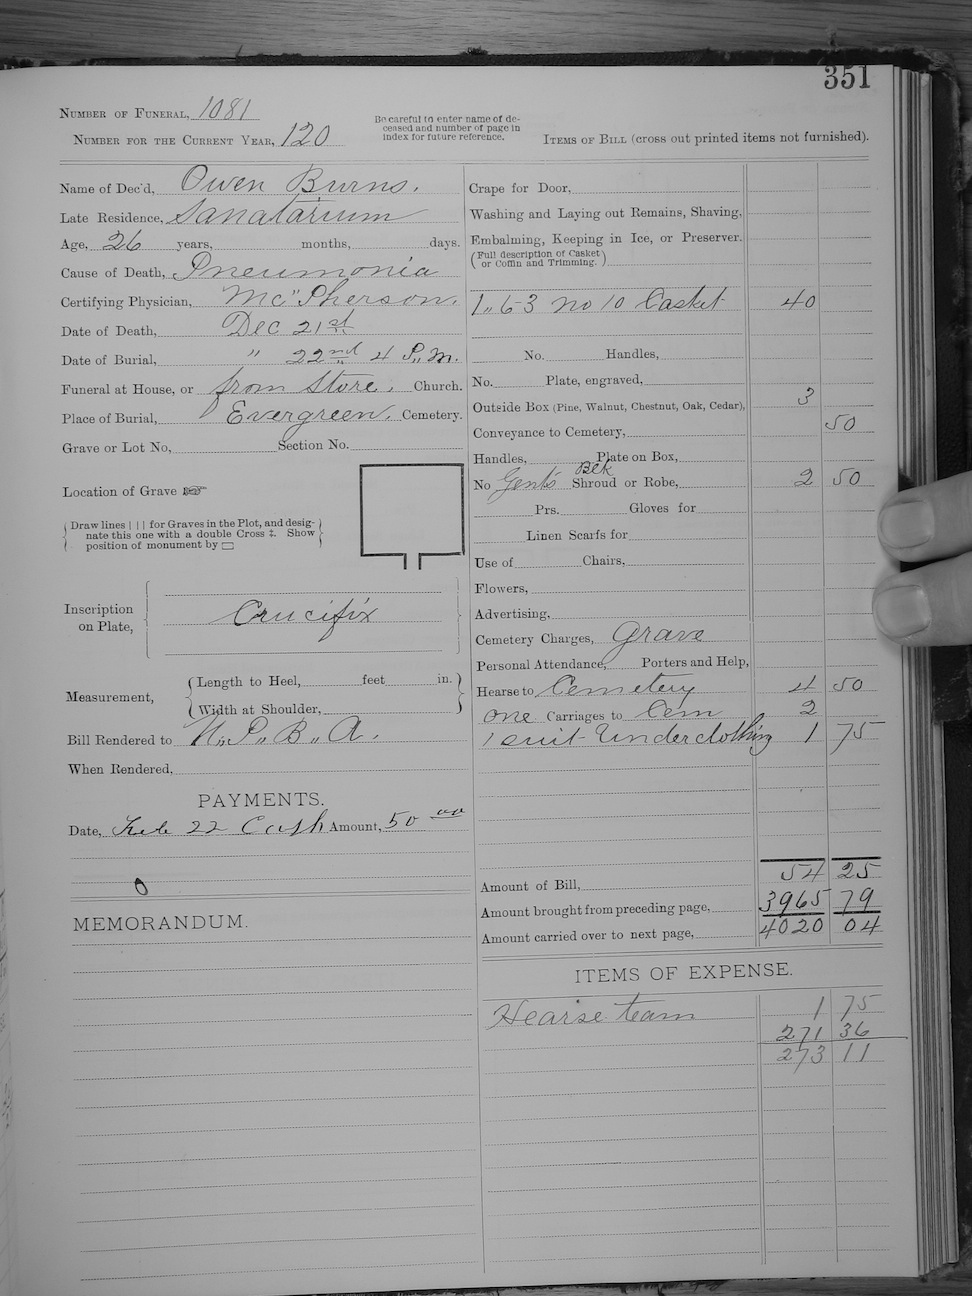 351
NUMBER OF FUNERAL, 1081
NUMBER FOR THE CURRENT YEAR, 120
Be careful to enter name of de-
ceased and number of page in
index for future reference.
ITEMS OF BILL (cross out printed items not furnished).
Name of Dec'd, Owen Burns.
Late Residence, Sanatarium
Age, 26 years, months, days.
Cause of Death, Pneumonia
Certifying Physician, Mc"Pherson.
Date of Death, Dec 21st
Date of Burial, " 22nd 4 P,, M.
Funeral at House, or from Store. Church.
Place of Burial, Evergreen. Cemetery.
Grave or Lot No, Section No.
Location of Grave
Draw lines | | | for Graves in the Plot, and desig-
nate this one with a double Cross ‡. Show
position of monument by
Inscription
on Plate,
Crucifix
Measurement,
Length to Heel, feet in.
Width at Shoulder,
Bill Rendered to N,, P,, B,, A.
When Rendered,
PAYMENTS.
Date, Feb 22 Cash Amount, 50 00
MEMORANDUM.
Crape for Door,
Washing and Laying out Remains, Shaving,
Embalming, Keeping in Ice, or Preserver.
(Full description of Casket
or Coffin and Trimming.)
1,, 6-3 no 10 Casket 40
No. Handles,
No. Plate, engraved,
Outside Box (Pine, Walnut, Chestnut, Oak, Cedar), 3
Conveyance to Cemetery, 50
Handles, Plate on Box,
No Gent's Blk Shroud or Robe, 2 50
Prs. Gloves for
Linen Scarfs for
Use of Chairs,
Flowers,
Advertising,
Cemetery Charges, Grave
Personal Attendance, Porters and Help,
Hearse to Cemetery 4 50
one Carriages to Cem 2
1 suit Underclothing 1 75
Amount of Bill, 54 25
Amount brought from preceding page, 3965 79
Amount carried over to next page, 4020 04
ITEMS OF EXPENSE.
Hearse team 1 75
271 36
273 11